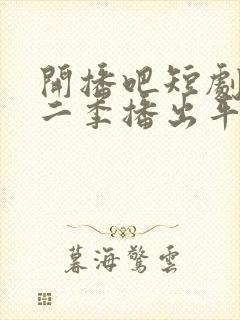 開播吧短劇
二季播出平
暮海驚雲